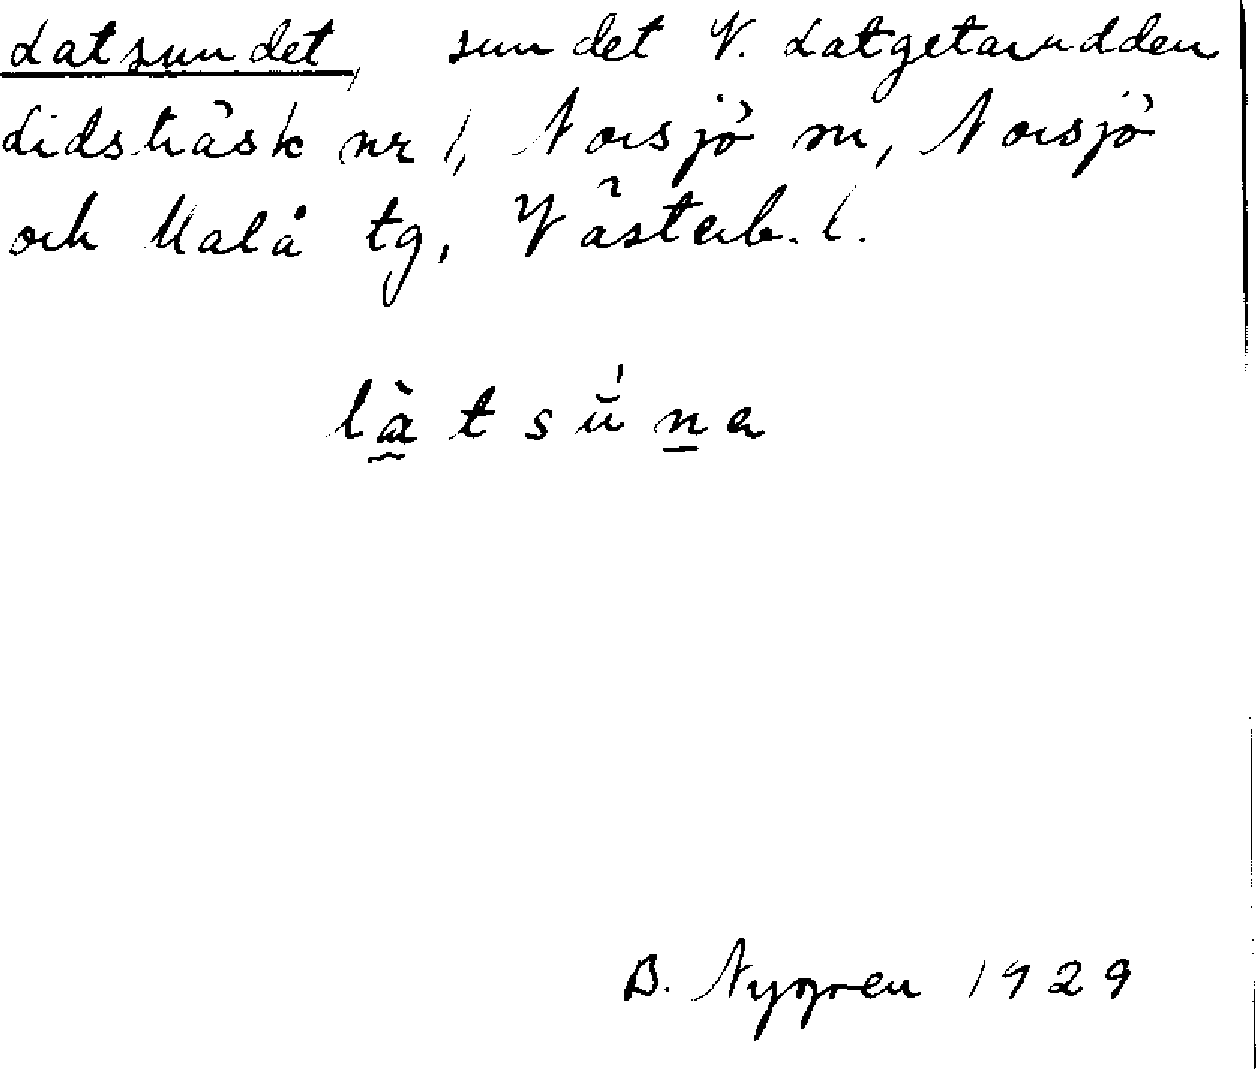 Latsundet, sundet V. Latgetarudden
Lidsträsk nr 1, Norsjö sn, Norsjö
och Malå tg, Västerb. l.
là̰t sū́n̲a
B. Nygren 1929